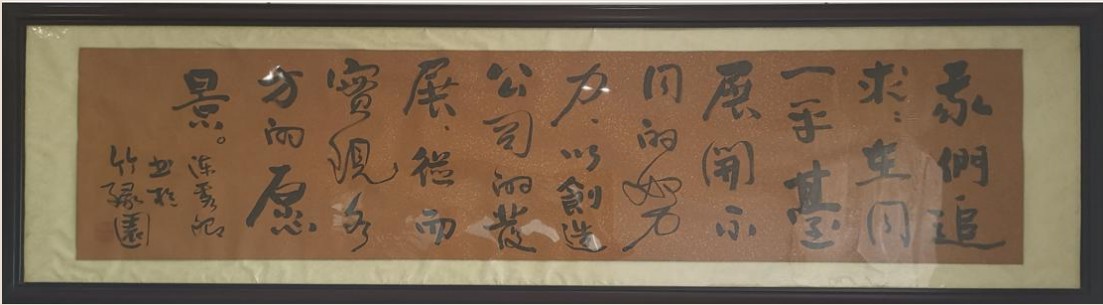 我們追
求：在同
一平臺
展開不
同的努
力，以創造
公司的發
展，從而
實現各
方的愿
景。
书於
竹緑園